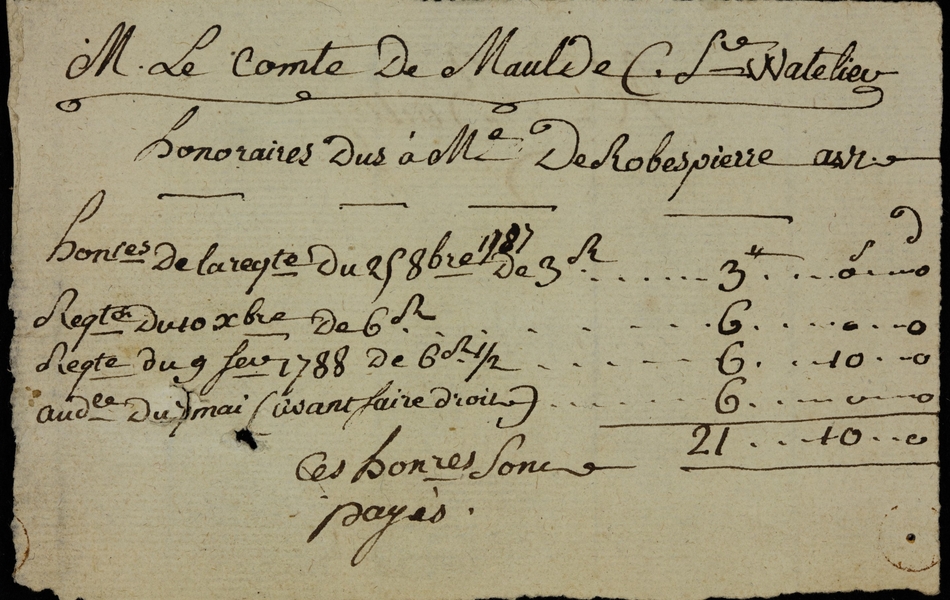 M. Le Comte De Maulde C. S.ve Watelier
honoraires Dus à Me De Robespierre
d
honres De la reqte Du 25 8bre 1787 De 3 R ..... 3tt... o ... o
Reqte Du 10 xbre De 6 R ..... 6 .... o ... o
Reqte du 9 fev 1788 De 6 R 1/2 ..... 6 ... 10 .. o
audce Du 7 mai (avant faire droit) ..... 6 .... o ... o
21 ... 10 .. o
Ces honres Sont
payés.